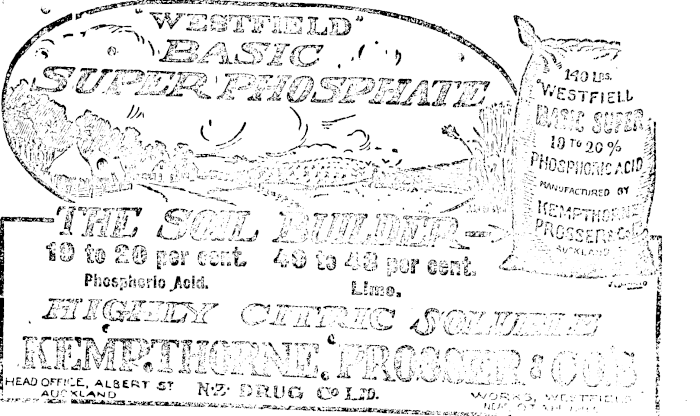 "WESTFIELD"
BASIC
SUPER PHOSPHATE
140 LBS.
"WESTFIELD
BASIC SUPER
19 TO 20 %
PHOSPHORIC ACID
MANUFACTURED BY
KEMPTHORNE
PROSSER & Co
AUCKLAND
THE SOIL BUILDER
19 to 20 per cent.
Phosphoric Acid.
per cent.
Lime.
HIGHLY CITRIC SOLUBLE
KEMPTHORNE, PROSSER & CO'S
HEAD OFFICE, ALBERT ST
AUCKLAND
N.Z. DRUG CO LTD.
WORKS, WESTFIELD